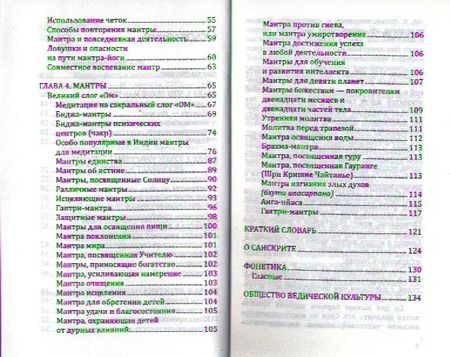 Использование четок 55
Способы повторения мантры 57
Мантра и повседневная деятельность 59
Ловушки и опасности
на пути мантра-йоги 60
Совместное воспевание мантр 63
ГЛАВА 4. МАНТРЫ 65
Великий слог «Ом» 65
Медитация на сакральный слог «ОМ» 67
Биджа-мантры 69
Биджа-мантры психических
центров (чакр) 74
Особо популярные в Индии мантры
для медитации 76
Мантры единства 87
Мантры об истине 89
Мантры, посвященные Солнцу 90
Различные мантры 92
Исцеляющие мантры 93
Гаятри-мантра 96
Защитные мантры 98
Мантры для освящения пищи 100
Мантра поклонения 101
Мантра мира 101
Мантра, посвященная Учителю 101
Мантры, приносящие богатство 102
Мантра, усиливающая намерение 103
Мантра очищения 103
Мантра исцеления 104
Мантра для обретения детей 104
Мантра удачи и благосостояния 105
Мантра, охраняющая детей
от дурных влияний 105
Мантра против гнева,
или мантра умиротворения 106
Мантра достижения успеха
в любой деятельности 106
Мантры для обучения
и развития интеллекта 106
Мантры для девяти планет 107
Мантры божествам — покровителям
двенадцати месяцев и
двенадцати частей тела 109
Утренняя молитва 111
Молитва перед трапезой 111
Мантра освящения воды 111
Брахма-мантра 113
Мантра, посвященная гуру 113
Мантра, посвященная Гауранге
(Шри Кришне Чайтанье) 113
Мантра изгнания злых духов
(бхути апасарпана) 114
Анга-ньяса 115
Гаятри-мантры 117
КРАТКИЙ СЛОВАРЬ 121
О САНСКРИТЕ 124
ФОНЕТИКА 130
Гласные 131
ОБЩЕСТВО ВЕДИЧЕСКОЙ КУЛЬТУРЫ 134